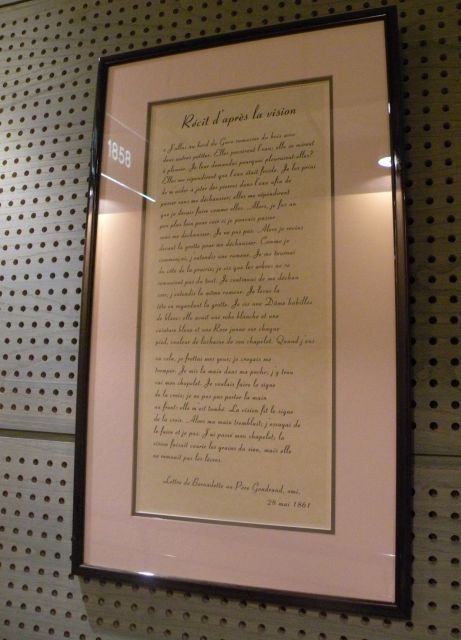 Récit d'après la vision
1858
« J'allai au bord du Gave ramasser du bois avec
deux autres petites. Elles passèrent l'eau; elles se mirent
à pleurer. Je leur demandai pourquoi pleuraient-elles?
Elles me répondirent que l'eau était froide. Je les priai
de m'aider à jeter des pierres dans l'eau afin de
passer sans me déchausser; elles me répondirent
que je devais faire comme elles. Alors, je fus un
peu plus loin pour voir si je pouvais passer
sans me déchausser. Je ne pus pas. Alors je revins
devant la grotte pour me déchausser. Comme je
commençais, j'entendis une rumeur. Je me tournai
du côté de la prairie; je vis que les arbres ne se
remuaient pas du tout. Je continuai de me déchaus-
ser; j'entendis la même rumeur. Je levai la
tête en regardant la grotte. Je vis une Dame habillée
de blanc: elle avait une robe blanche et une
ceinture bleue et une Rose jaune sur chaque
pied, couleur de la chaîne de son chapelet. Quand j'eus
vu cela, je frottai mes yeux; je croyais me
tromper. Je mis la main dans ma poche; j'y trou-
vai mon chapelet. Je voulais faire le signe
de la croix; je ne pus pas porter la main
au front: elle m'est tombé. La vision fit le signe
de la croix. Alors ma main tremblait; j'essayai de
le faire et je pus. J'ai passé mon chapelet; la
vision faisait courir les grains du sien, mais elle
ne remuait pas les lèvres.
«Lettre de Bernadette au Père Gondrand, omi,
28 mai 1861